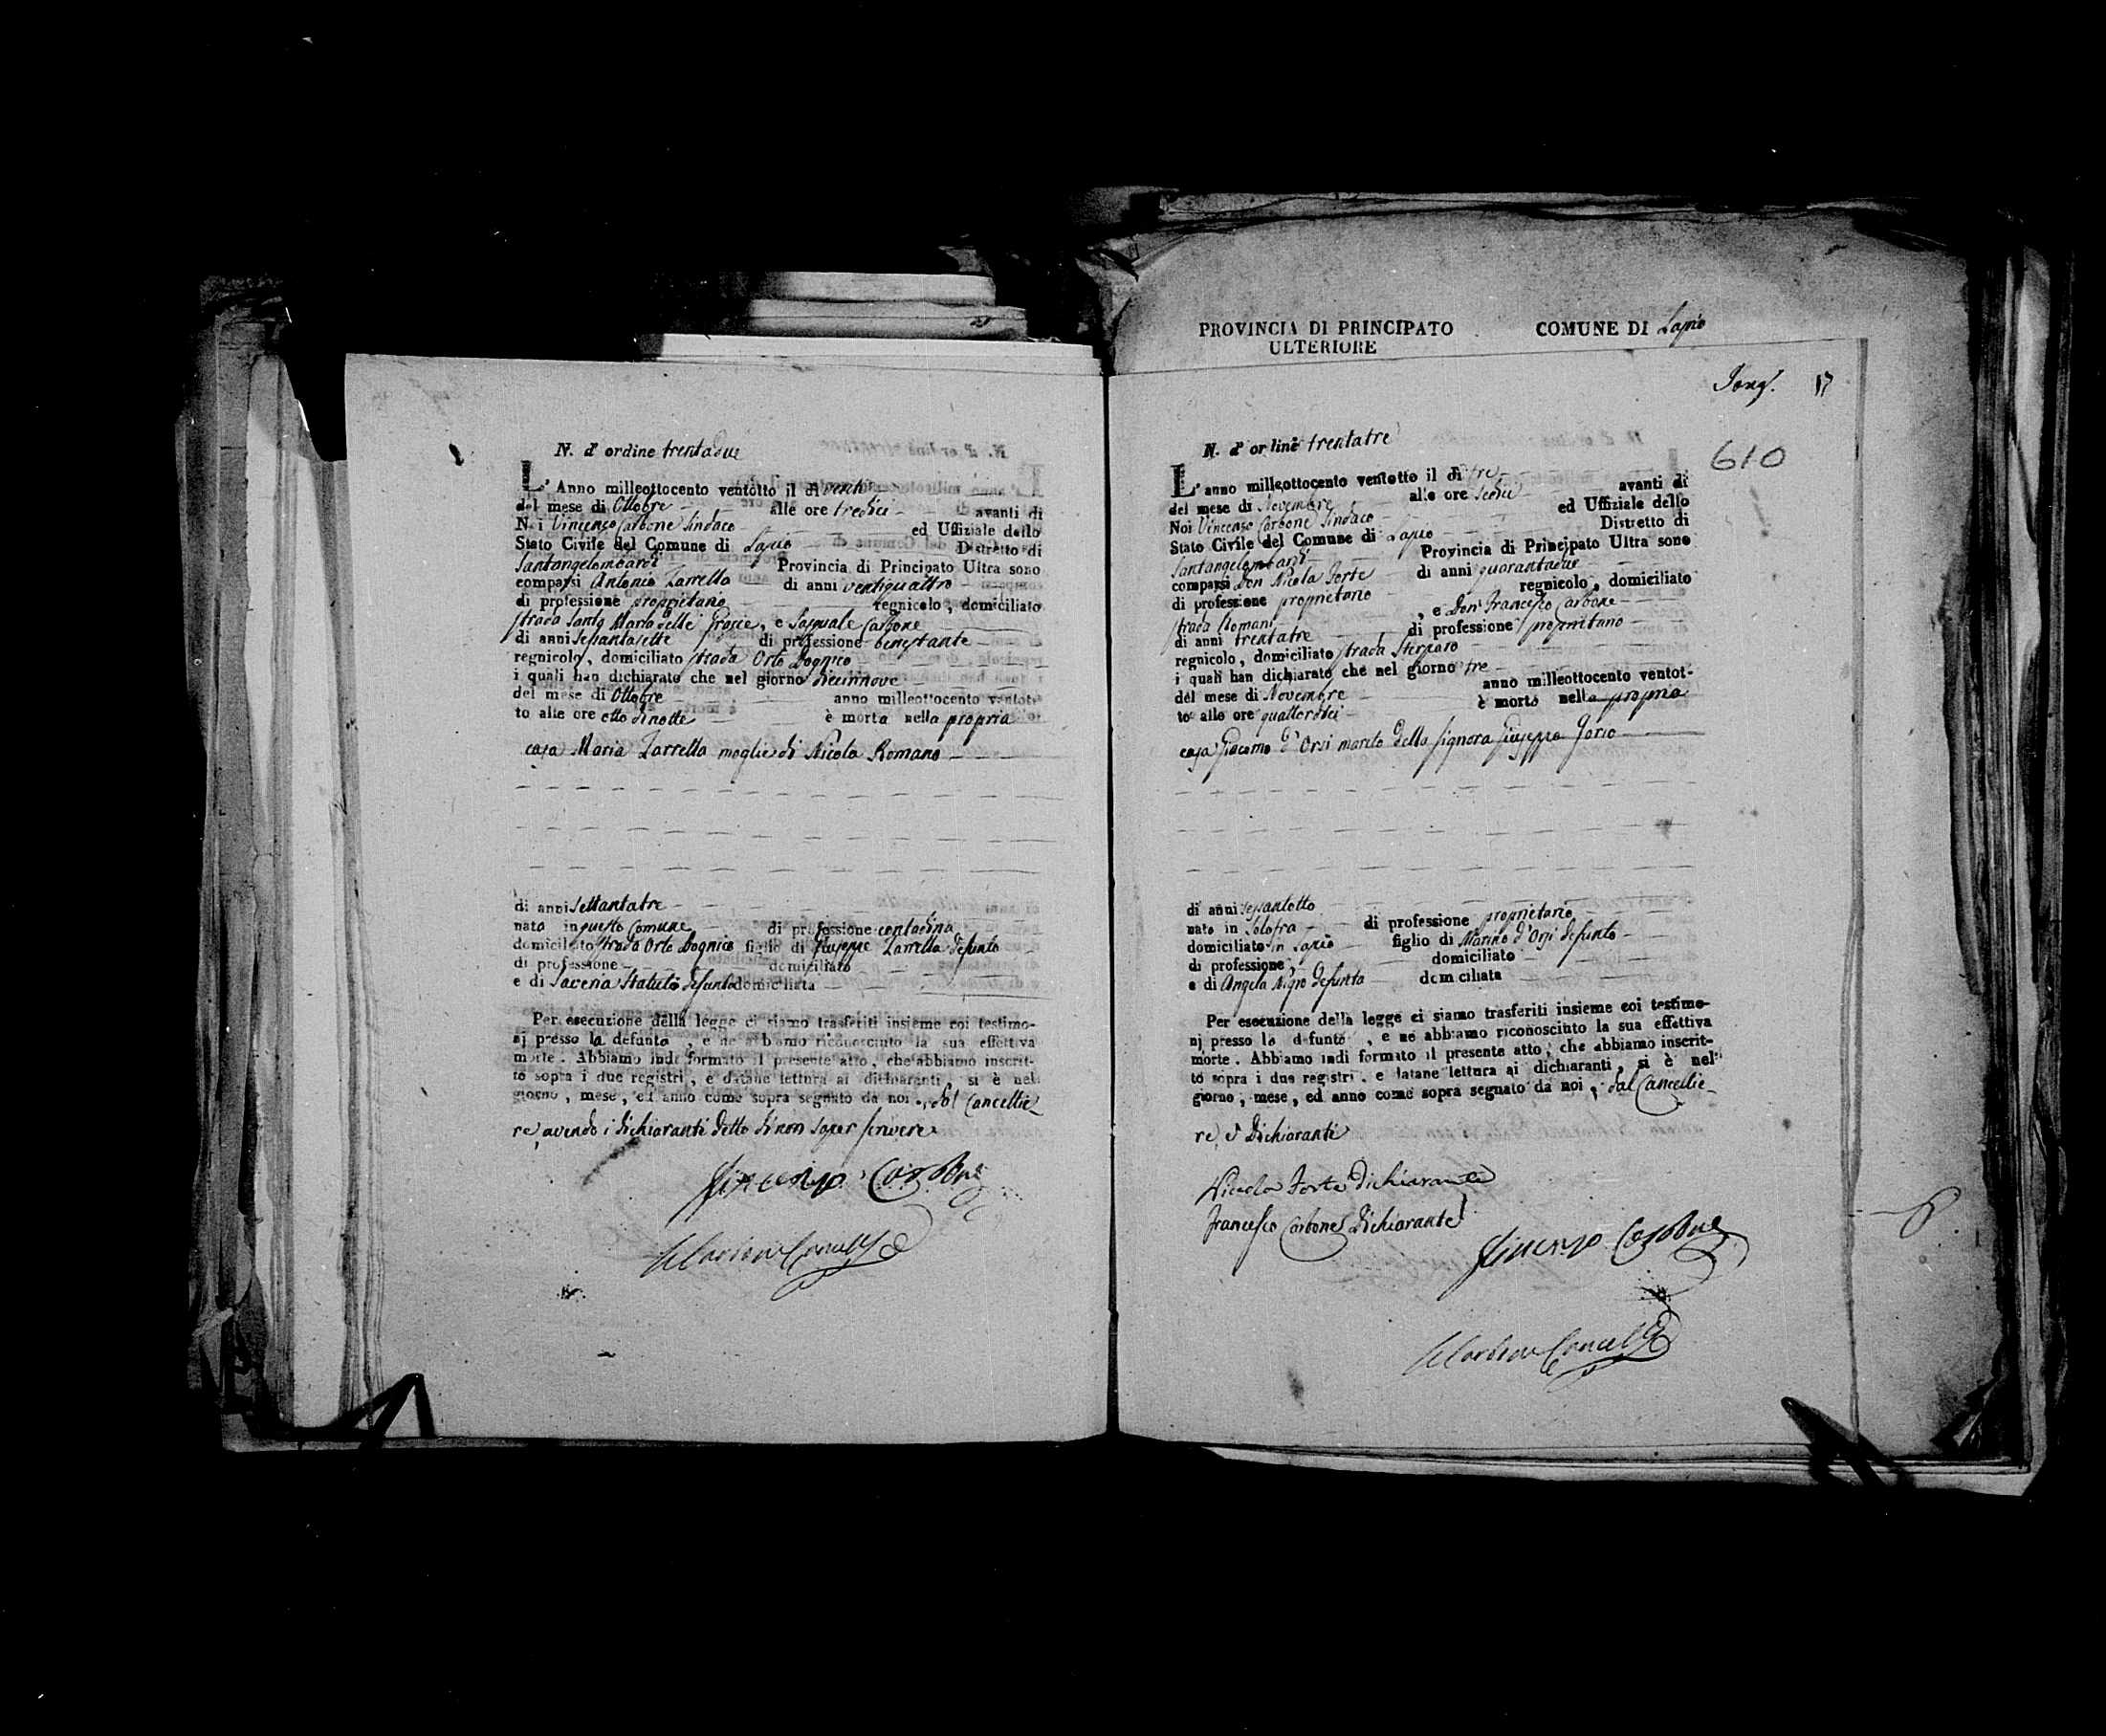 N. d' ordine trentadue
L' Anno milleottocento ventotto il dì venti
del mese di Ottobre alle ore tredici avanti di
Noi Vincenzo Carbone Sindaco ed Uffiziale dello
Stato Civile del Comune di Lapio Distretto di
Santangelombardi Provincia di Principato Ultra sono
comparsi Antonio Zarrella di anni ventiquattro
di professione proprietario regnicolo, domiciliato
strada Santa Maria delle Grazie, e Pasquale Carbone
di anni sessantasette di professione benestante
regnicolo, domiciliato strada Orto Dognico
i quali han dichiarato che nel giorno diecinnove
del mese di Ottobre anno milleottocento ventot-
to alle ore otto di notte è morta nella propria
casa Maria Zarrella moglie di Nicola Romano
di anni settantatre
nata in questo Comune di professione contadina
domiciliata strada Orto Dognico figlio di Giuseppe Zarrella defunto
di professione domiciliato
e di Saveria defunta domiciliata
Per esecuzione della legge ci siamo trasferiti insieme coi testimo-
nj presso la defunta, e ne abbiamo riconosciuto la sua effettiva
morte. Abbiamo indi formato il presente atto, che abbiamo inscrit-
to sopra i due registri, e datane lettura ai dichiaranti, si è nel
giorno, mese, ed anno come sopra segnato da noi, dal Cancellie-
re, avendo i dichiaranti detto di non saper scrivere
Vincenzo Carbone
PROVINCIA DI PRINCIPATO ULTERIORE COMUNE DI Lapio
17
610
N. d' ordine trentatre
L' anno milleottocento ventotto il dì tre
del mese di Novembre alle ore sedici avanti di
Noi Vincenzo Carbone Sindaco ed Uffiziale dello
Stato Civile del Comune di Lapio Distretto di
Santangelombardi Provincia di Principato Ultra sono
comparsi Don Nicola Forte di anni quarantadue
di professione proprietario regnicolo, domiciliato
strada Romani, e Don Francesco Carbone
di anni trentatre di professione proprietario
regnicolo, domiciliato strada Sterparo
i quali han dichiarato che nel giorno tre
del mese di Novembre anno milleottocento ventot-
to alle ore quattordici è morto nella propria
casa Giacomo d'Orsi marito della signora Giuseppa Jorio
di anni sessantotto
nato in Solofra di professione proprietario
domiciliato in Lapio figlio di Marino d'Orsi defunto
di professione, domiciliato
e di Angela Nigro defunta domiciliata
Per esecuzione della legge ci siamo trasferiti insieme coi testimo-
nj presso lo defunto, e ne abbiamo riconosciuto la sua effettiva
morte. Abbiamo indi formato il presente atto, che abbiamo inscrit-
to sopra i due registri, e datane lettura ai dichiaranti, si è nel
giorno, mese, ed anno come sopra segnato da noi, dal Cancellie-
re, e Dichiaranti
Nicola Forte Dichiarante
Francesco Carbone Dichiarante
Vincenzo Carbone